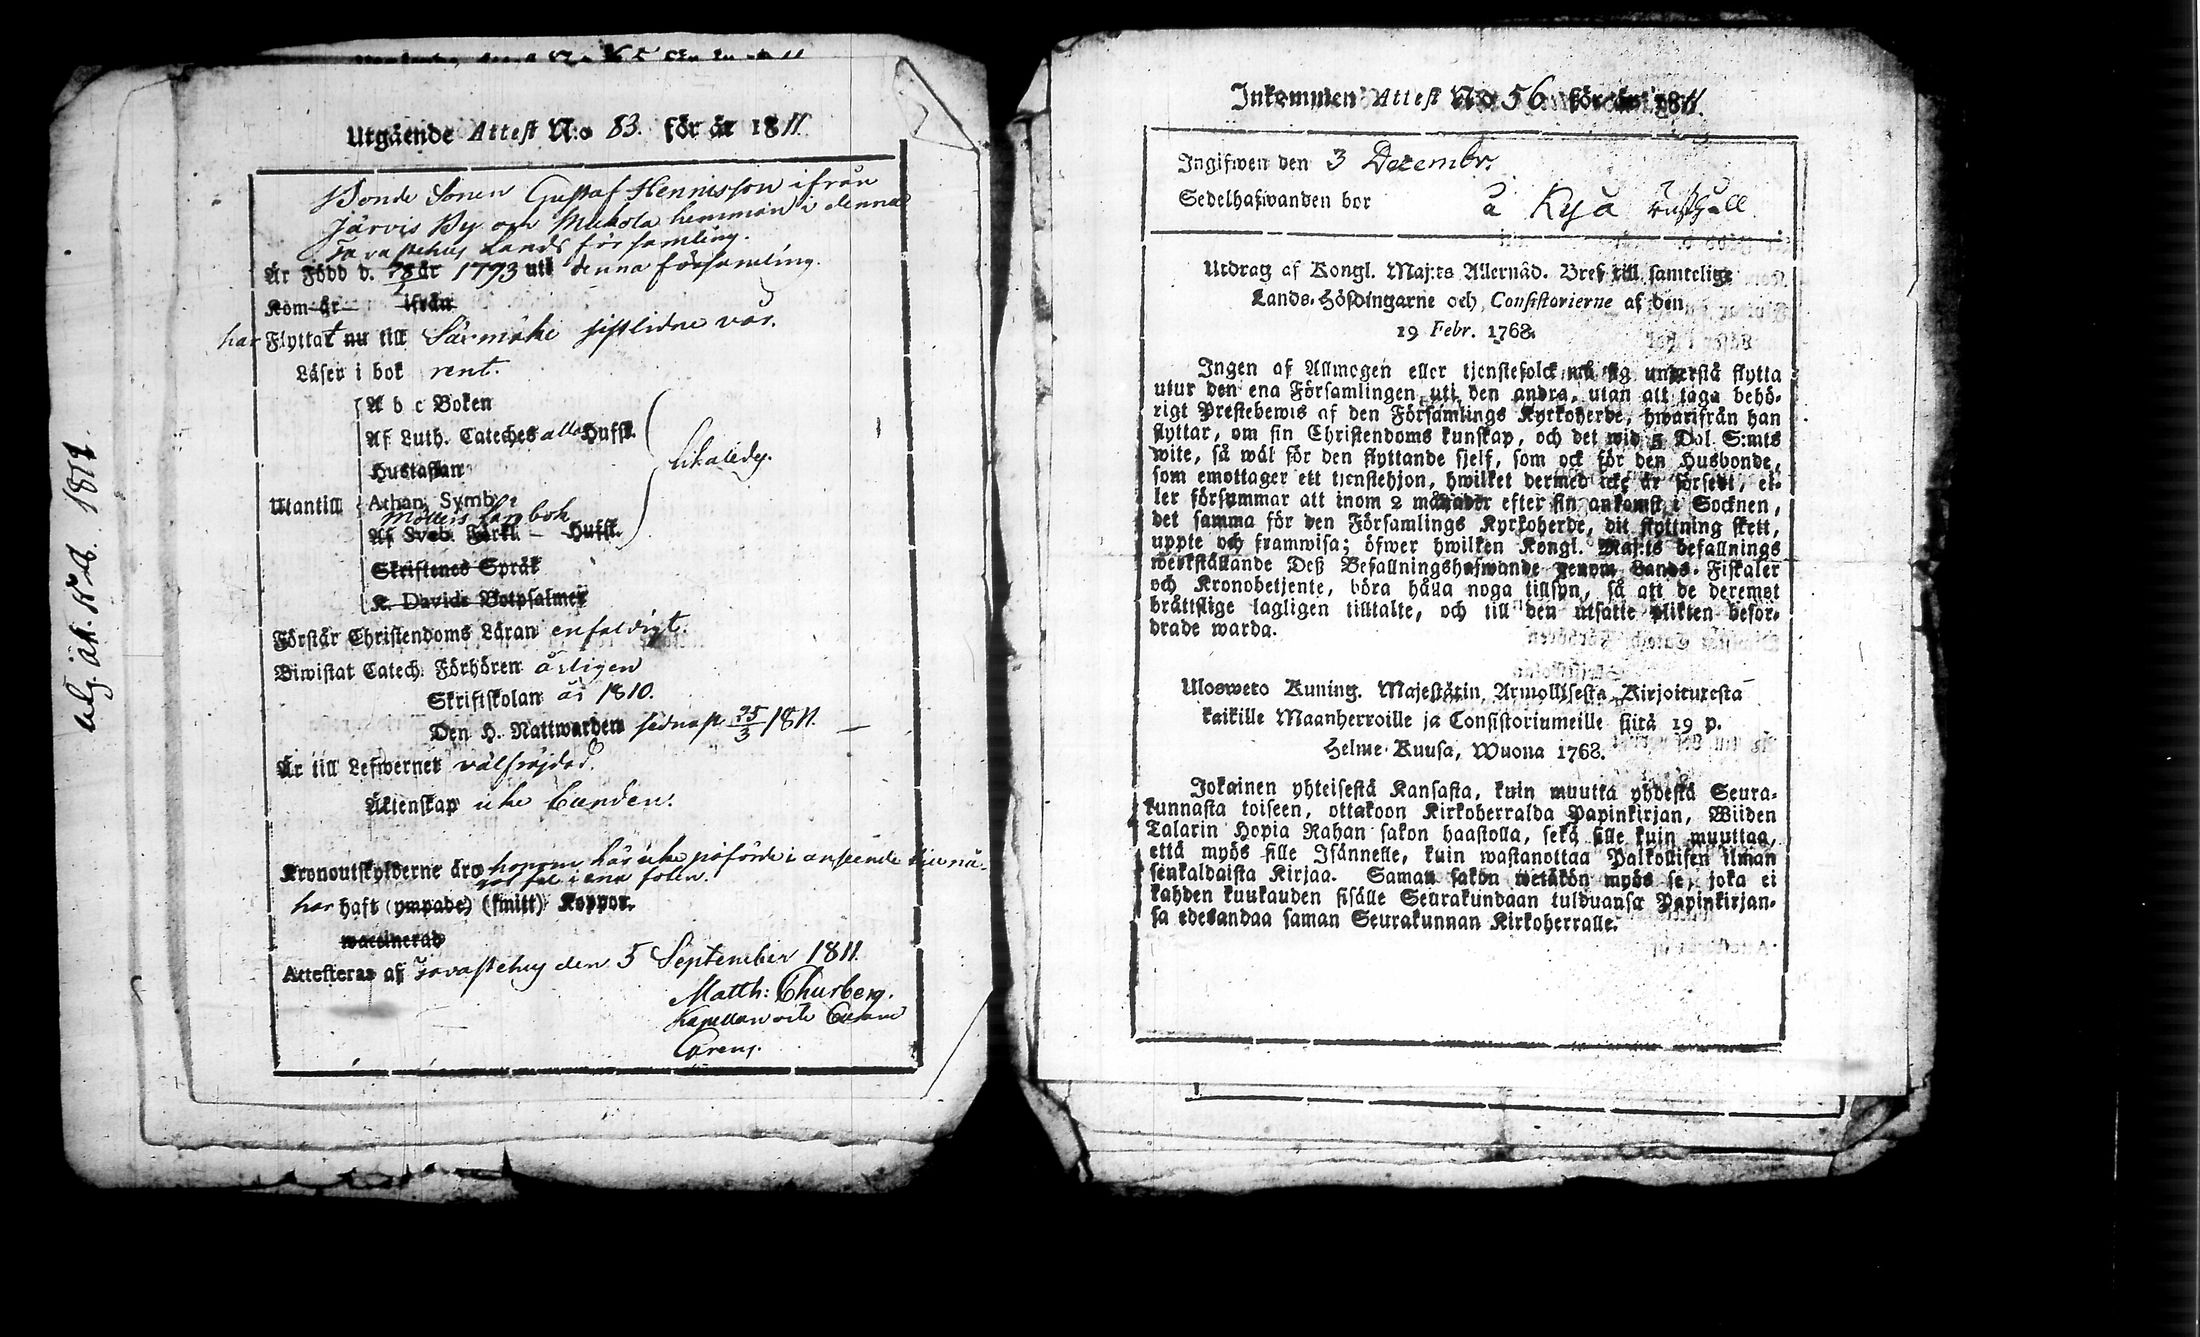 Utgående Attest N:o 83. för år 1811.
Bonde Sonen Gustaf Hennisson ifrån
Järvis By och Mickola hemman i denna
Tavastehus Lands församling.
Är Född d. år 1793 uti denna församling.
Kom år ifrån
har Flyttat nu till Särmäki sistlidne vår.
Läser i bok rent.
A b c Boken
Af Luth. Cateches alla Hufst.
Hustaflan
likaledes.
Utantill
Athan. Symb.
Möllers
Af Sveb. Förkl. — Hufst.
Skriftenes Språk
K. Davids Botpsalmer
Förstår Christendoms Läran enfaldigt.
Biwistat Catech. Förhören årligen
Skriftskolan år 1810.
Den H. Nattwarden sednast 25/3 1811. —
Är till Lefwernet välfräjdad.
Äktenskap icke bunden.
Kronoutskylderne äro honom här icke påförde i anseende
har haft (ympade) (smitt) Koppor.
waccinerad
Attesteras af Tavastehus den 5 September 1811.
Matth: Churberg.
Kapellan
alg. äk. N:o 26. 1811.
Inkommen Attest N:o 56 för år 1811.
Ingifwen den 3 Decembr.
Sedelhafwanden bor å Kyå rusthåll
Utdrag af Kongl. Maj:ts Allernåd. Bref till samtelige
Lands-Höfdingarne och Consistorierne af den
19 Febr. 1768.
Ingen af Allmogen eller tjenstefolck må sig understå flytta
utur den ena Församlingen uti den andra, utan att taga behö-
rigt Prestebewis af den Församlings Kyrkoherde, hwarifrån han
flyttar, om sin Christendoms kunskap, och det wid 5 Dal. S:mts
wite, så wäl för den flyttande sjelf, som ock för den Husbonde,
som emottager ett tjenstehjon, hwilket dermed icke är försedt, el-
ler försummar att inom 2 månader efter sin ankomst i Socknen,
det samma för den Församlings Kyrkoherde, dit flyttning skett,
uppte och framwisa; öfwer hwilken Kongl. Maj:ts befallnings
werkställande Deß Befallningshafwande genom Lands-Fiskaler
och Kronobetjente, böra hålla noga tillsyn, så att de deremot
bråttslige lagligen tilltalte, och till den utsatte plikten befor-
drade warda.
Ulosweto Kuning. Majestätin Armollisesta Kirjoituxesta
kaikille Maanherroille ja Consistoriumeille siitä 19 p.
Helme-Kuusa, Wuona 1768.
Jokainen yhteisestä Kansasta, kuin muutta yhdestä Seura-
kunnasta toiseen, ottakoon Kirkoherralda Papinkirjan, Wiiden
Talarin Hopia Rahan sakon haastolla, sekä sille kuin muuttaa,
että myös sille Isännelle, kuin wastanottaa Palkollisen ilman
senkaldaista Kirjaa. Saman sakon wetäkön myös se, joka ei
kahden kuukauden sisälle Seurakundaan tulduansa Papinkirjan-
sa edesandaa saman Seurakunnan Kirkoherralle.